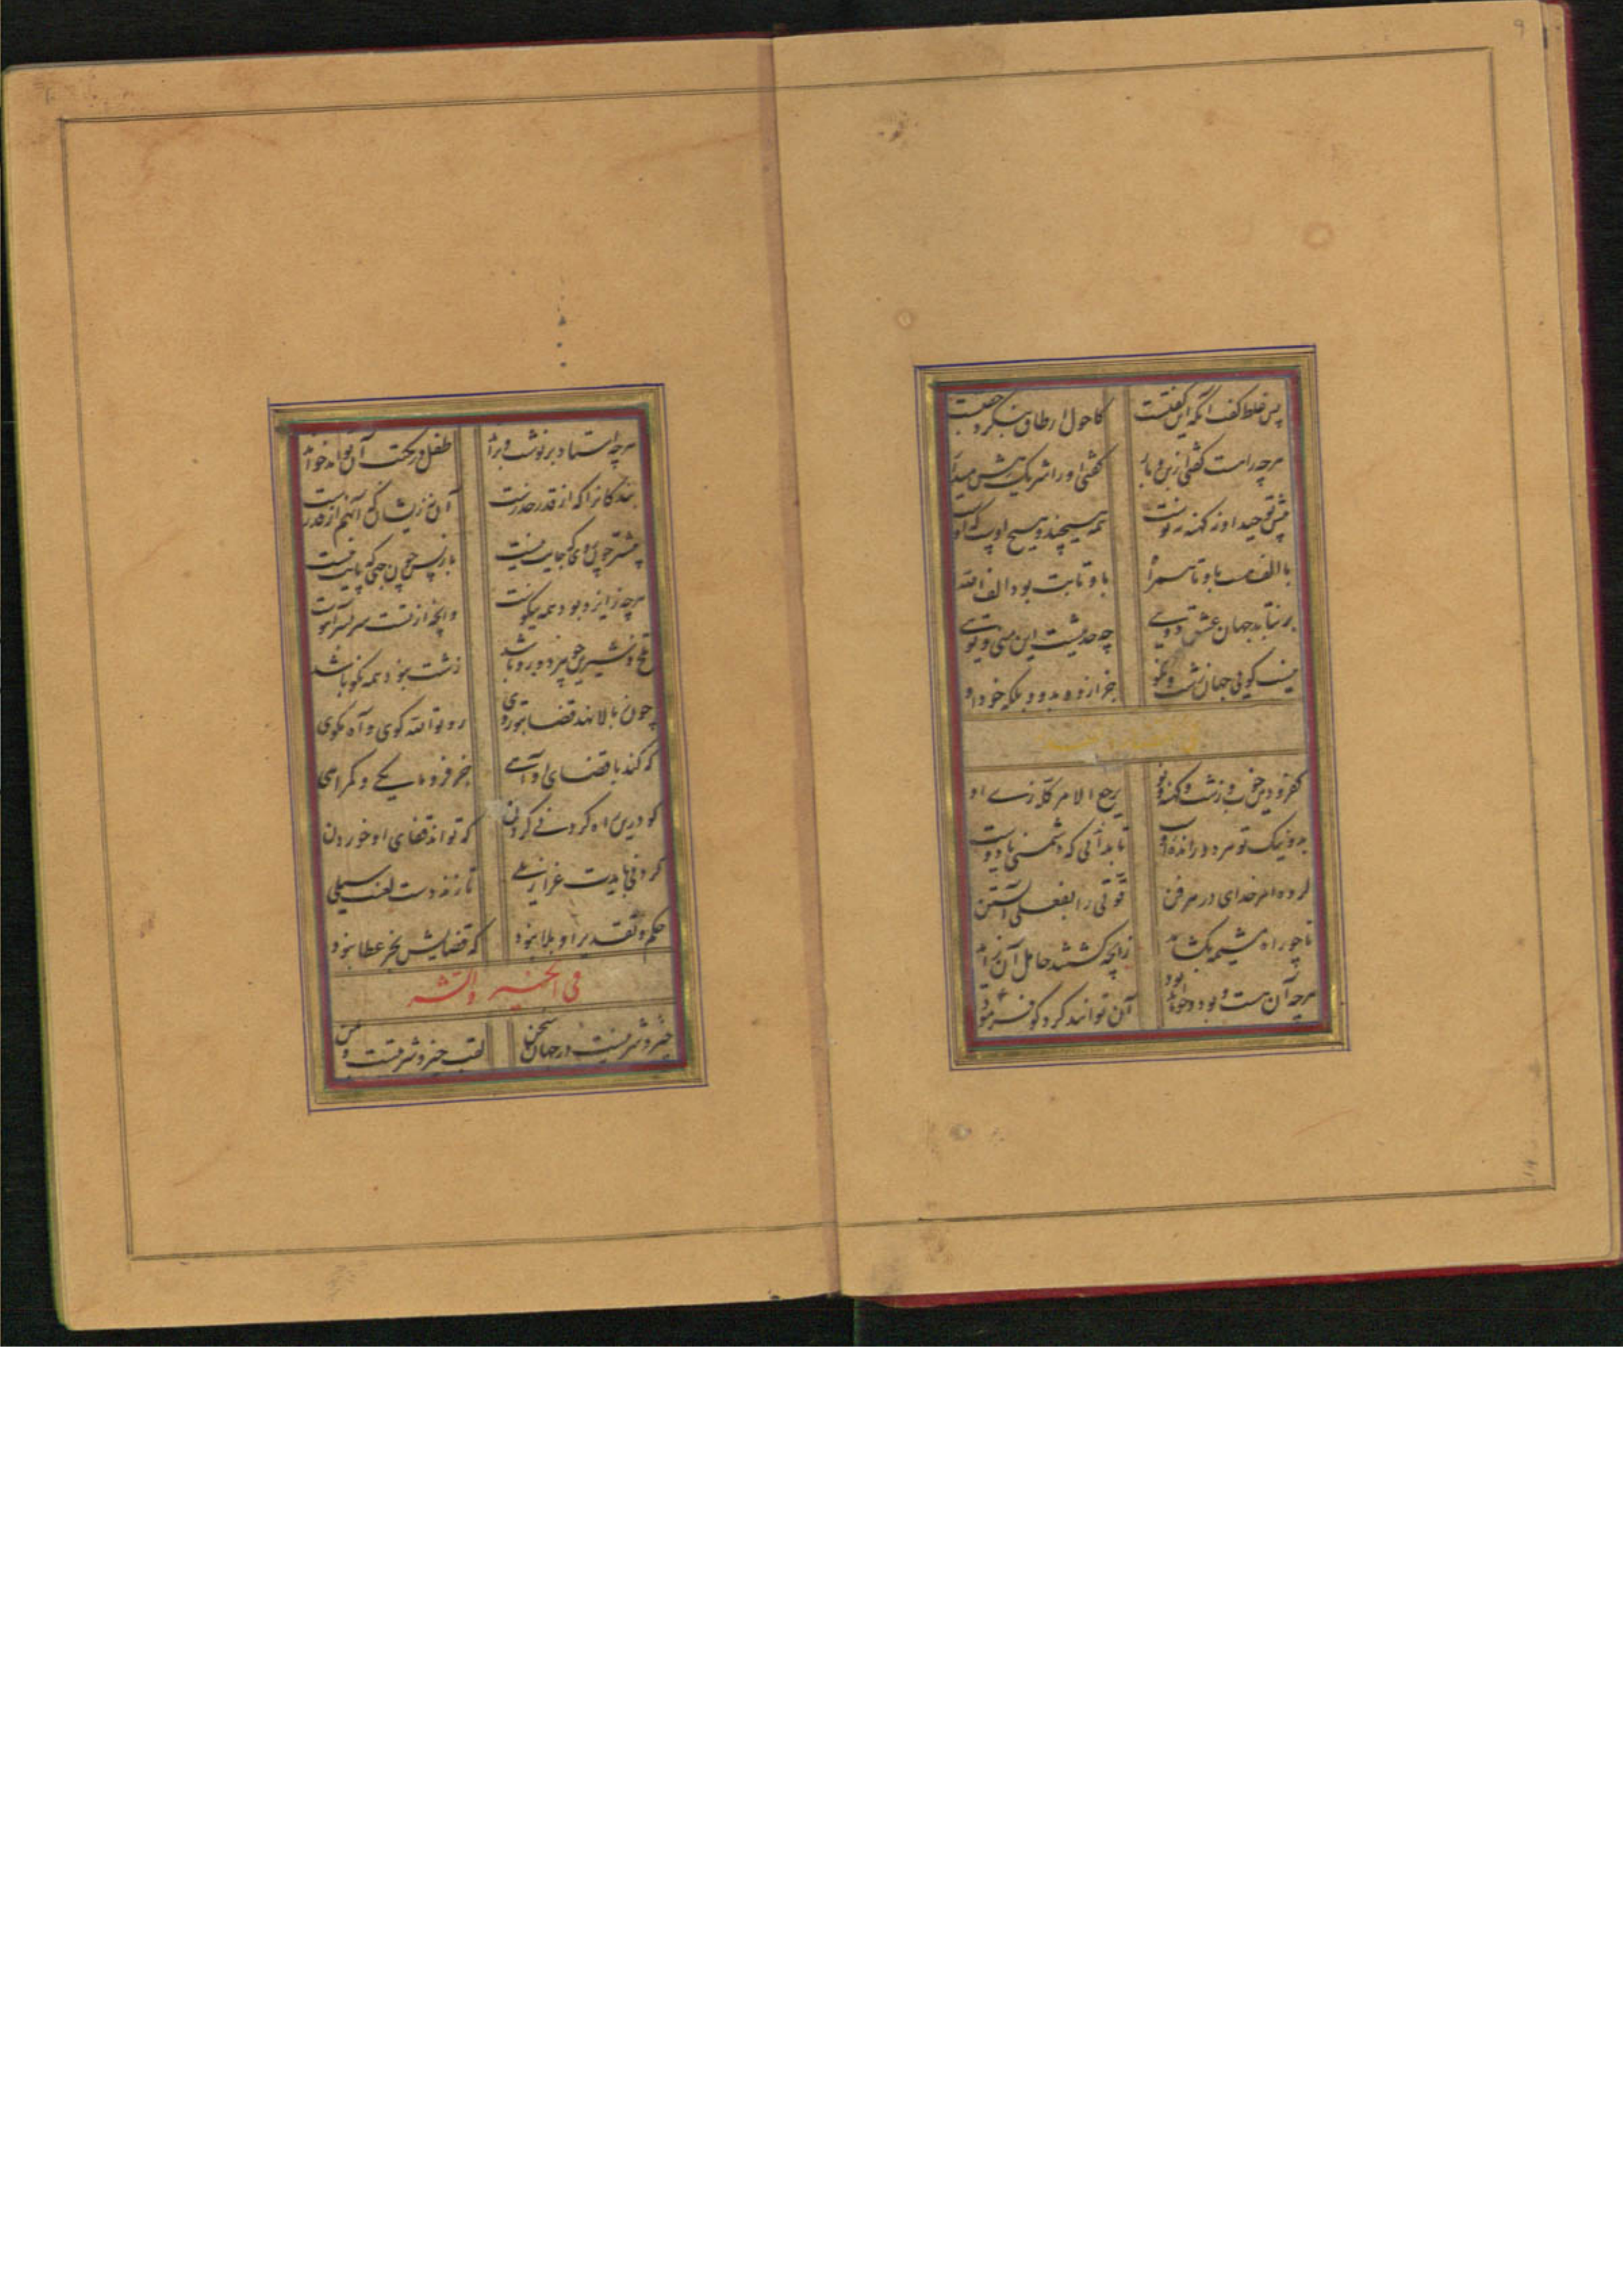 ۹
پس غلط گفت آنکه این گفتست کاحول ار طاق بنگرد جفتست
هرچه راهست گفتی از بن و بار گفتی او را شریک هش میدار
پیش توحید او نه کهنه نه نوست همه هیچند هیچ اوست که اوست
با الف هست با و تا همراه با و تا بت بود الف الله
برنتابد جهان عشق دویی چه حدیثست این منی و تویی
نیست گویی جهان زشت و نکو جز ازو و بدو و بلکه خود او
کفر و دین خوب و زشت و کهنه و نو یرجع الامر کله زی او
بد و نیک تو مر ورا تا بدانی که دشمنی یا دوست
کرده امر خدای در هر فن قوتی را بفعل آبستن
تا چو راه مشیمه بگشاید زانچه کشتند حامل آن زاید
هرچه آن هست و بود و خواهد بود آن توانند کرد کو فرمود
هرچه استاد برنوشت و براند طفل در مکتب آن تواند خواند
بندگانرا که از قدر حذرست آن نه زیشان که آنهم از قدرست
پیشتر چون روی که جایت نیست باز پس چون جهی که پایت نیست
هرچه زایزد بود همه نیکوست وانچه از تست سربسر آهوست
تلخ و شیرین چو هر دو زو باشد زشت نبود همه نکو باشد
چون بالا نهد قضا بتو روی رو تو الله گوی و آه مگوی
که کند با قضای او آهی جز فرومایگی و گمراهی
کو درین راه گردنی گردن که تواند قفای او خوردن
گردنی بایدت عزازیلی تا زند دست لعنتش سیلی
حکم و تقدیر او بلا نبود که قضایش بجز عطا نبود
فی الخیر والشر
خیر و شر نیست در جهان سخن لقب خیر و شر بتست و بمن